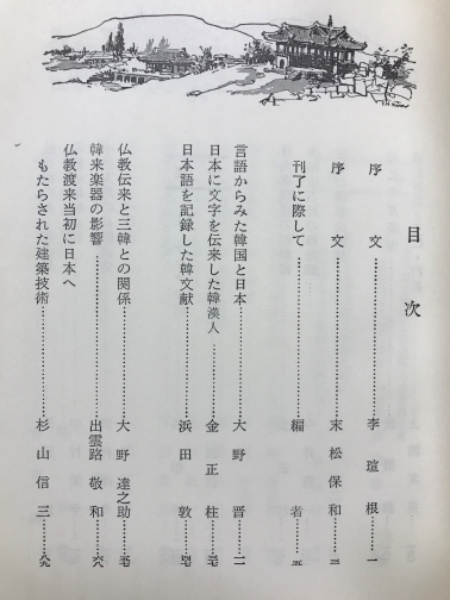 目次
序文……李瑄根…一
序文……末松保和…三
刊了に際して……編者…五
言語からみた韓国と日本……大野晋…一一
日本に文字を伝来した韓漢人……金正柱…
日本語を記録した韓文献……浜田敦…
仏教伝来と三韓との関係……大野達之助…
韓来楽器の影響……出雲路敬和…
仏教渡来当初に日本へ
もたらされた建築技術……杉山信三…